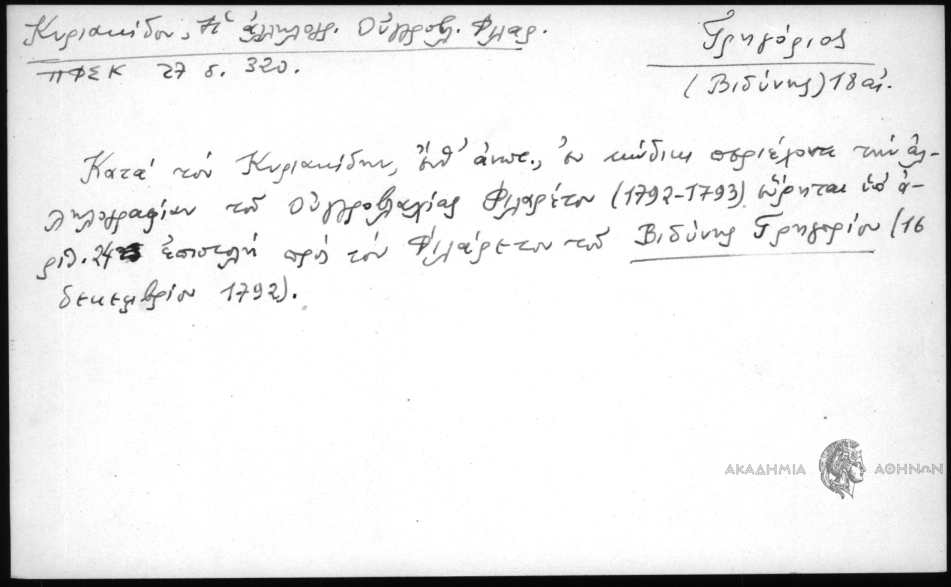 Κυριακίδου, Ἡ ἀλληλογρ. Οὑγγροβλ. Φιλαρ.
ΠΦΣΚ 27 δ. 320.
Γρηγόριος
(Βιδύνης) 18 αἰ.
Κατά τόν Κυριακίδην, ἔνθ' ἀνωτ., ἐν κώδικι περιέχοντι τήν ἀλ-
ληλογραφίαν τοῦ Οὑγγροβλαχίας Φιλαρέτου (1792-1793) εὕρηται ὑπ' ἀ-
ριθ. 24 ἐπιστολή πρός τόν Φιλάρετον τοῦ Βιδύνης Γρηγορίου (16
δεκεμβρίου 1792).
ΑΚΑΔΗΜΙΑ ΑΘΗΝΩΝ